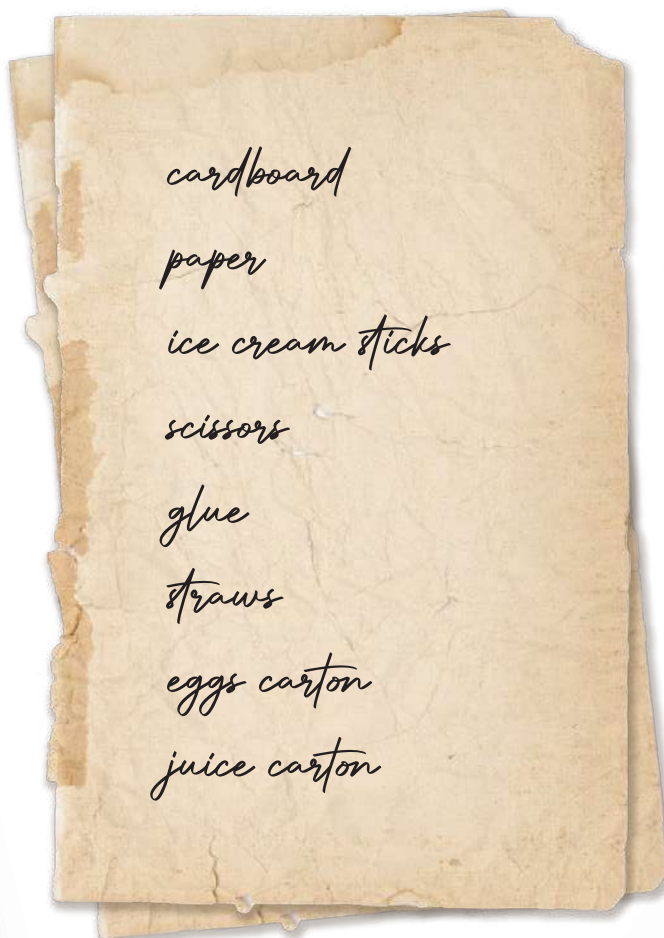 cardboard
paper
ice cream sticks
scissors
glue
straws
eggs carton
juice carton